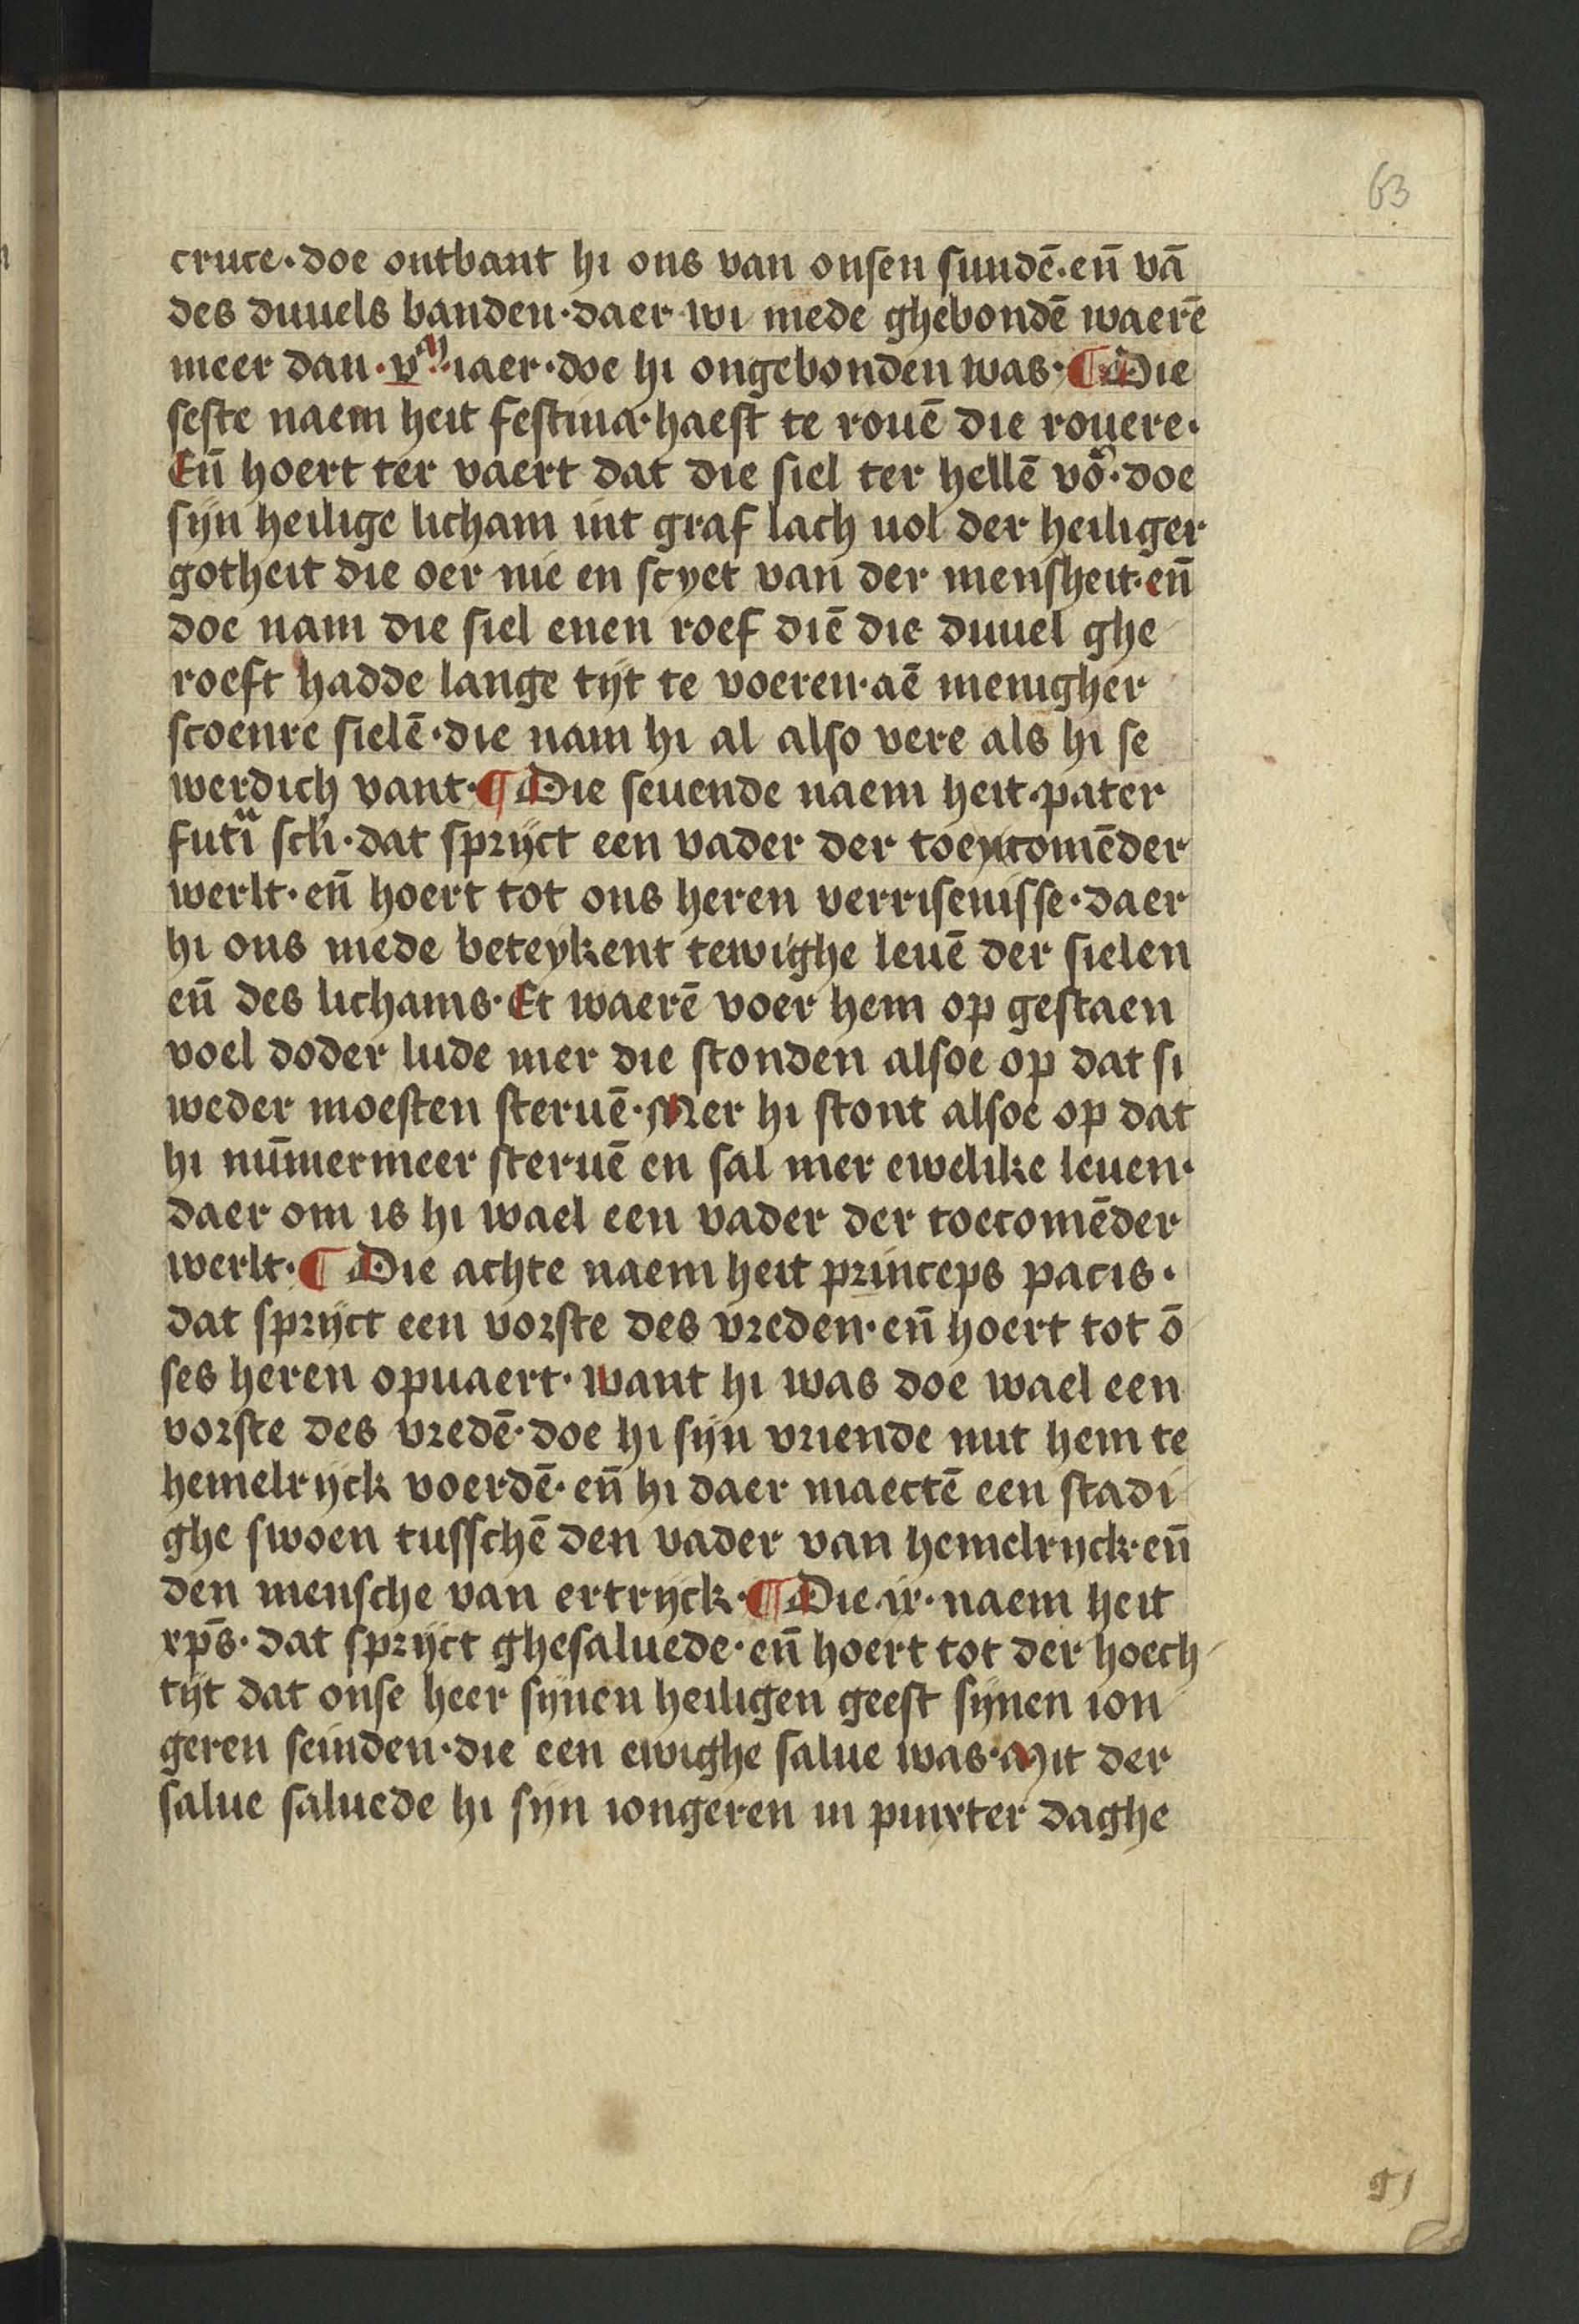 63
cruce · doe ontbant hi ons van onsen sundē · en̄ vā
des duuels banden · daer wi mede ghebondē waerē
meer dan · vᵐ · iaer · doe hi ongebonden was · ¶ Die
seste naem heit festina · haest te rouē die rouere ·
En̄ hoert ter vaert dat die siel ter hellē voͬ · doe
sijn heilige licham int graf lach uol der heiliger
gotheit die oer nie en scyet van der mensheit · en̄
doe nam die siel enen roef diē die duuel ghe
roeft hadde lange tijt te voeren · aē menigher
scoenre sielē · die nam hi al also vere als hi se
werdich vant · ¶ Die seuende naem heit · pater
futͣi scl'i · dat sprijct een vader der toeycomēder
werlt · en̄ hoert tot ons heren verrisenisse · daer
hi ons mede beteykent tewighe leuē der sielen
en̄ des lichams · Et waerē voer hem op gestaen
voel doder lude mer die stonden alsoe op dat si
weder moesten steruē · Mer hi stont alsoe op dat
hi nūmermeer steruē en sal mer ewelike leuen ·
daer om is hi wael een vader der toecomēder
werlt · ¶ Die achte naem heit princeps pacis ·
dat sprijct een vorste des vreden · en̄ hoert tot ō
ses heren opuaert · want hi was doe wael een
vorste des vredē · doe hi sijn vriende mit hem te
hemelrijck voerdē · en̄ hi daer maectē een stadi
ghe swoen tusschē den vader van hemelrijck · en̄
den mensche van ertrijck · ¶ Die · ix · naem heit
xp̄s · dat sprijct ghesaluede · en̄ hoert tot der hoech
tijt dat onse heer sijnen heiligen geest sijnen ion
geren seinden · die een ewighe salue was · Mit der
salue saluede hi sijn iongeren in pinxter daghe